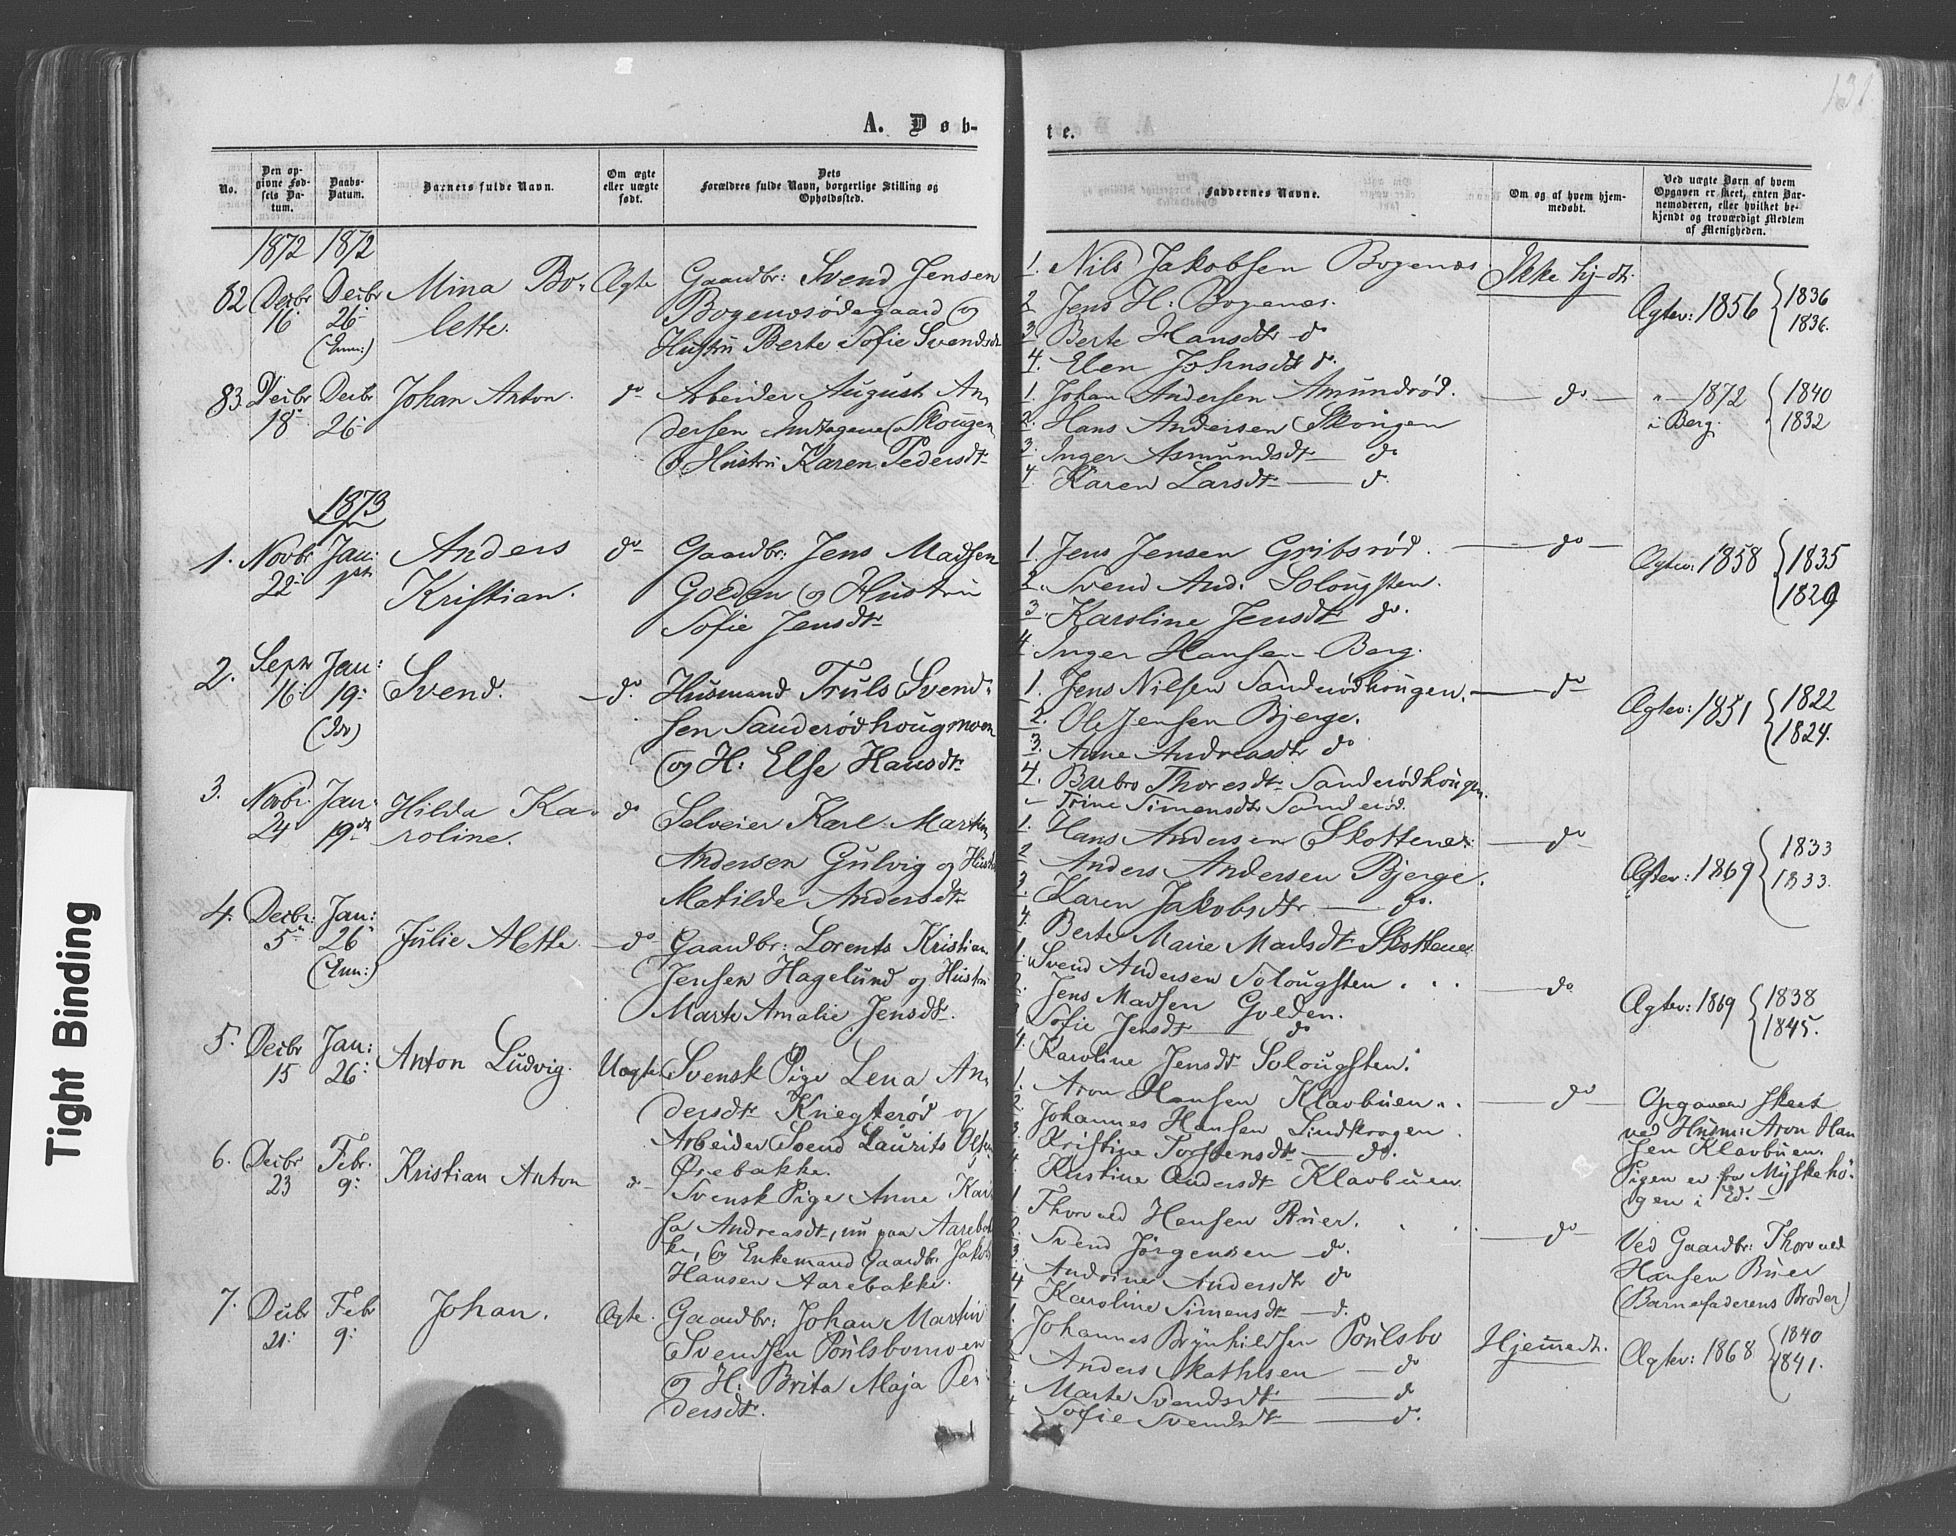 131
A. Døb-
te.
No.
Den op-
givne Fød-
sels Da-
tum.
Daabs-
Datum.
Barnets fulde Navn.
Om ægte
eller uægte
født.
Dets
Forældres fulde Navn, borgerlige Stilling og
Opholdssted.
Faddernes Navne.
Om og af hvem hjem-
medøbt.
Ved uægte Børn af hvem
Opgaven er skeet, enten Bar-
nemoderen, eller hvilket be-
kjendt og troværdigt Medlem
af Menigheden.
1872 1872
82 Decbr 16 Decbr 26 (Enm:)
Mina Bo-
lette.
Ægte
Gaardbr: Svend Jensen
Bogenæsødegaard og
Hustru Berte Sofie Svendsdt
1. Nils Jakobsen Bogenæs
2. Jens H: Bogenæs.
3 Berte Hansdtr do
4. Elen Johnsdtr do.
Ikke hj-dt.
Ægtev: 1856 { 1836
1836.
83 Decbr 18 Decbr 26
Johan Anton.
do
Arbeider August An-
dersen Skougen
og Hustru Karen Pedersdtr
1. Johan Andersen Amundrød.
2. Hans Andersen Skougen
3. Inger Asmundsdt do
4 Karen Larsdtr do
do
" 1872 { 1840
i Berg. 1832
1873
1. Novbr 22 Jan: 1ste
Anders
Kristian.
do
Gaardbr: Jens Madsen
Golden og Hustru
Sofie Jensdtr
1. Jens Jensen Gribsrød.
2. Svend And. Solougsten.
3 Karoline Jensdtr do.
4 Inger Hansen Berg.
do
Ægtev: 1858 { 1835
1829
2. Septr 16. Jan: 19.
Svend.
do.
Husmand Truls Svend-
sen Sanderødhougmoen
og H: Else Hansdtr
1. Jens Nilsen Sanderødhougen.
2. Ole Jensen Bjerge.
3. Anne Andreasdtr do
4. Barbro Thoresdtr Sanderødhougen.
- Trine Simensdtr Sanderød.
do
Ægtev: 1851 { 1822
1824.
3. Novbr. 24 Jan: 19de
Hilda Ka-
roline.
do
Selveier Karl Martin
Andersen Gulvig og Hustru
Matilde Andersdtr
1. Hans Andersen Skottene
2 Anders Andersen Bjerge.
3. Karen Jakobsdtr do.
4. Berte Marie Madsdtr Skottene
do
Ægtev: 1869 { 1833
1833.
4. Decbr: 5 Jan: 26 (Enm:)
Julie Alette.
do
Gaardbr: Lorents Kristian
Jensen Hagelund og Hustru
Marte Amalie Jensdt.
1. Svend Andersen Solougsten
2. Jens Madsen Golden.
Sofie Jensdt do
4. Karoline Jensdt Solougsten.
do
Ægtev: 1869 { 1838
1845.
5. Decbr 15 Jan: 26.
Anton Ludvig.
Uægte.
Svensk Pige Lena An-
dersdtr Kniegterød og
Arbeider Svend Laurits Olsen
Ørebakke.
1. Aron Hansen Klavbuen
2. Johannes Hansen Lindkrogen
3 Kristine Torstensdt do.
Kristine Andersdt Klavbuen
do
Opgaven skeet
ved Husm: Aron Han-
sen Klavbuen.
Pigen er fra
i Ed.
6. Decbr 23 Febr. 9:
Kristian Anton
do
Svensk Pige Anne Kai-
sa Andreasdt, nu paa Aarebak-
ke, og Enkemand Gaardbr. Jakob
Hansen Aarebakke.
1 Thorvald Hansen Buer.
2. Svend Jørgensen do.
3. Andrine Andersdtr do
4 Karoline Simensdt do.
do
Ved Gaardbr: Thorvald
Hansen Buer
(Barnefaderens Broder)
7. Decbr 21. Febr 9:
Johan.
Ægte.
Gaardbr: Johan Martin
Svendsen Poulsbomoen
og H: Brita Maja Pe-
dersdt.
1. Johannes Brynhildsen Poulsbo
Anders Mathisen do
Marte Svendsdt do
Sofie Svendsdt do.
Hjemmedt.
Ægtev: 1868 { 1840
1841.
Tight Binding